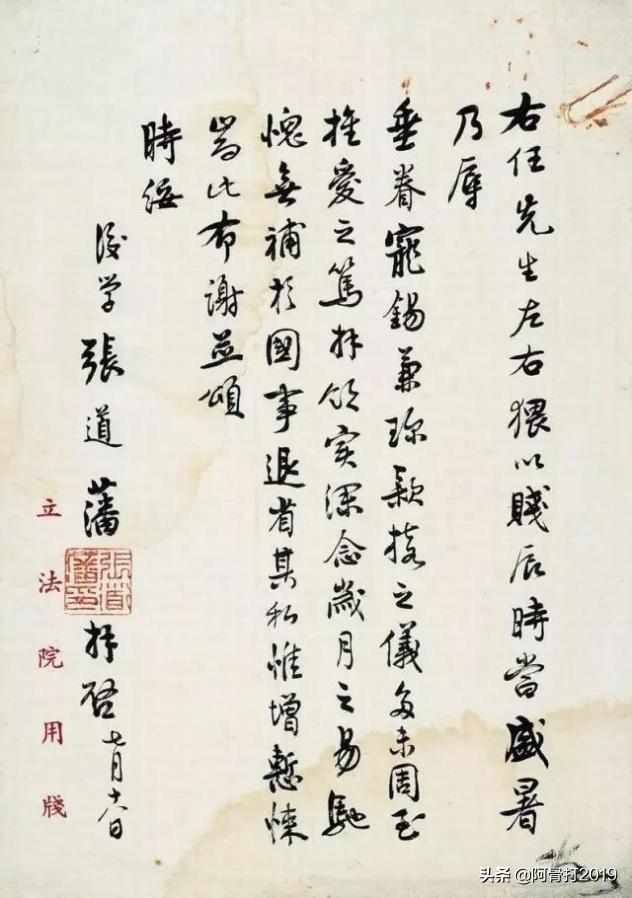 右任先生左右猥以賤辰時當盛暑
乃辱
垂眷寵錫兼珍款接之儀多未周至
推愛之篤拜領實深念歲月之易馳
愧無補於國事退省其私惟增慙悚
耑此布謝並頌
時綏
後學張道藩拜啓七月十六日
張道藩印
立法院用牋
头条 @阿骨打2019